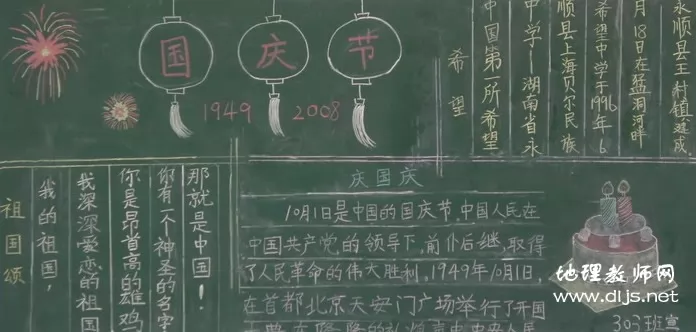 国庆节
1949 2008
希望
中国第一所希望
中学—湖南省永
顺县上海贝尔民族
希望中学于1996年6
月18日在猛洞河畔
永顺县王村镇建成.
祖国颂
我的祖国,
我深深爱恋的祖国
你是昂首高的雄鸡
你有一个神圣的名字
那就是中国!
庆国庆
10月1日是中国的国庆节.中国人民在
中国共产党的领导下,前仆后继,取得
了人民革命的伟大胜利,1949年10月1日,
在首都北京天安门广场举行了开国
303班宣
地理教师网
www.dljs.net